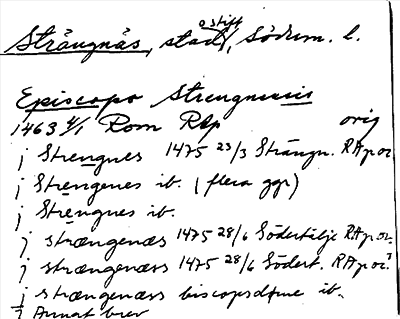 Strängnäs, stad o stift, Söderm. l.
Episcopo Strengnensis
1463 4/1 Rom RAp orig
j Strengnes 1475 23/3 Strängn. RAp or.
j Strengenes ib. (flera ggr)
j Strengnes ib.
j strængenæs 1475 28/6 Södertälje RAp or.
j strængenæss 1475 28/6 Södert. RAp or.
j strængenæss biscopsdøme ib.
Annat brev